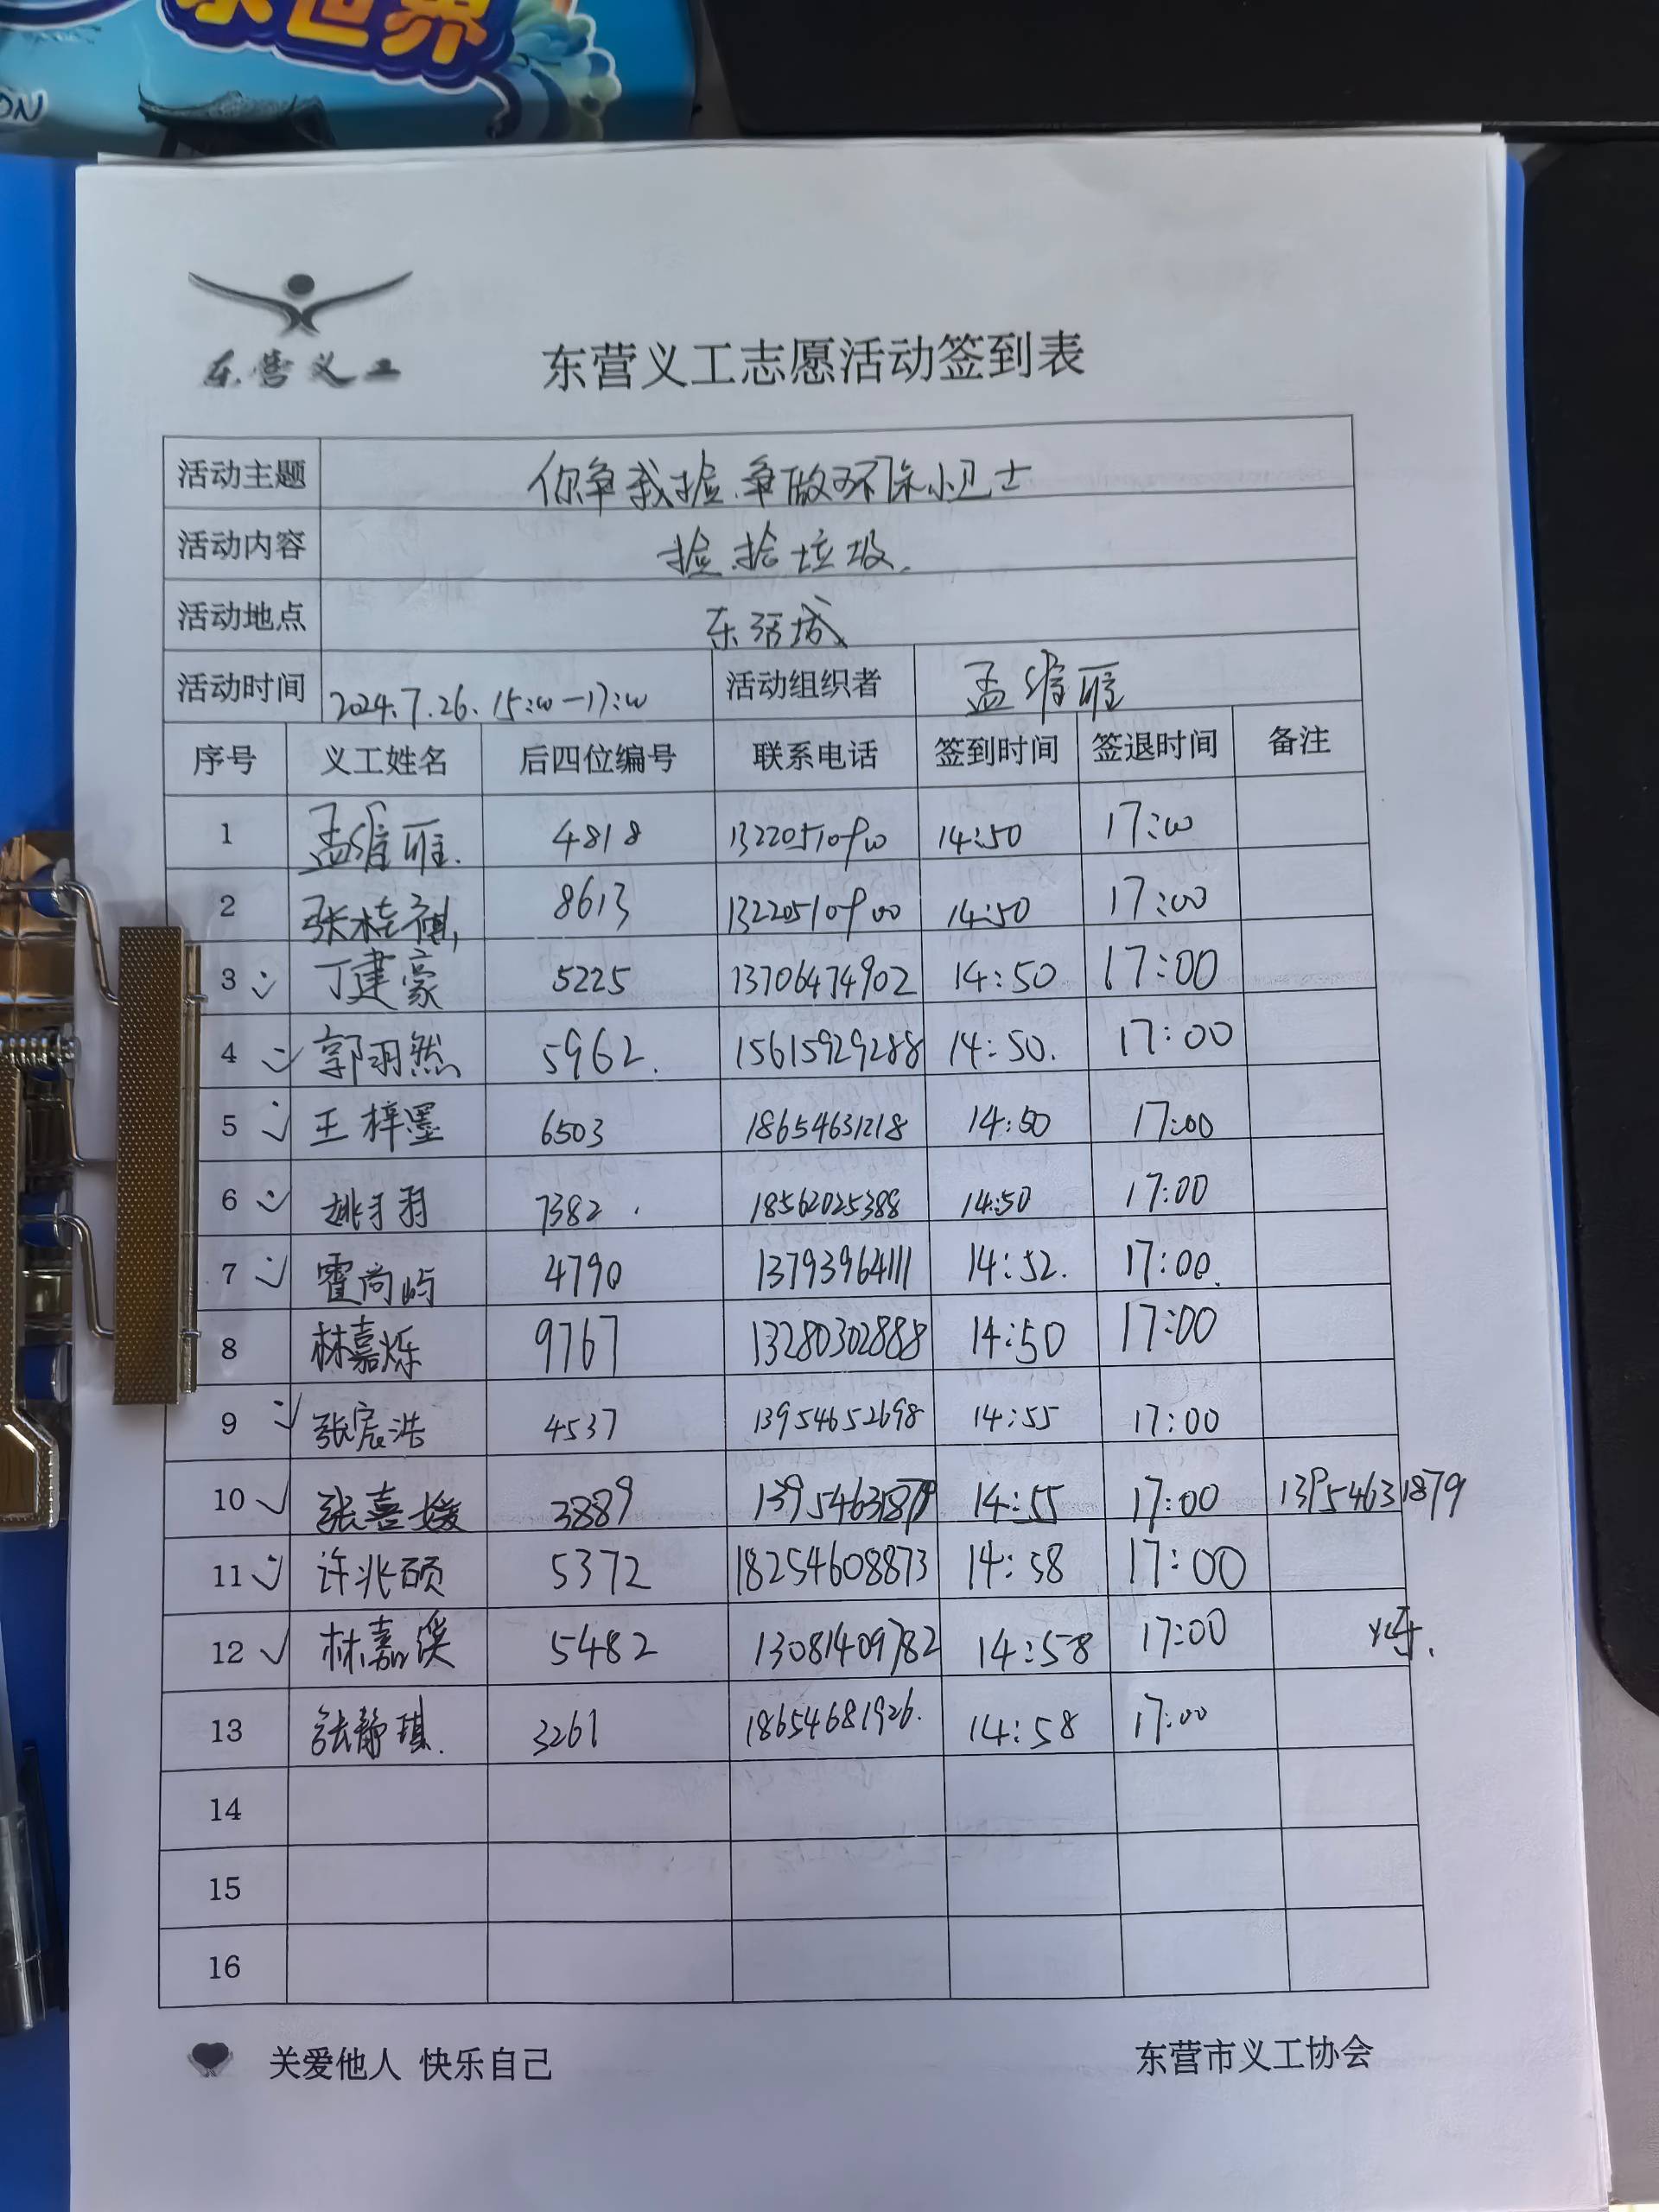 乐世界
ON
东营义工
东营义工志愿活动签到表
活动主题 你争我捡.争做环保小卫士
活动内容 捡拾垃圾.
活动地点 东活城
活动时间 2024.7.26.15:00-17:00 活动组织者 孟维雁
序号 义工姓名 后四位编号 联系电话 签到时间 签退时间 备注
1 孟维雁. 4818 13220510900 14:50 17:00
2 张桂祺 8613 13220510900 14:50 17:00
3 丁建豪 5225 13706474902 14:50 17:00
4 郭羽然 5962. 15615929288 14:50. 17:00
5 王梓墨 6503 18654631218 14:50 17:00
6 姚于羽 7382. 18562025388 14:50 17:00
7 霍尚屿 4790 13793964111 14:52. 17:00.
8 林嘉烁 9767 13280302888 14:50 17:00
9 张宸浩 4537 13954652698 14:55 17:00
10 张喜媛 3889 13954631879 14:55 17:00 13954631879
11 许兆硕 5372 18254608873 14:58 17:00
12 林嘉溪 5482 13081409782 14:58 17:00
13 张静琪. 3261 18654681926. 14:58 17:00
14
15
16
关爱他人 快乐自己 东营市义工协会